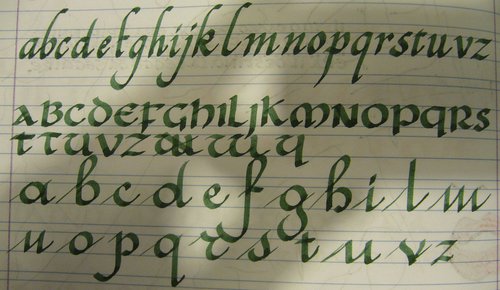 abcdefghijklmnopqrstuvz
aBCDEFGhILJKMNOPQRS
TTUVZ
a b c d e f g h i l m
n o p q r s t u v z